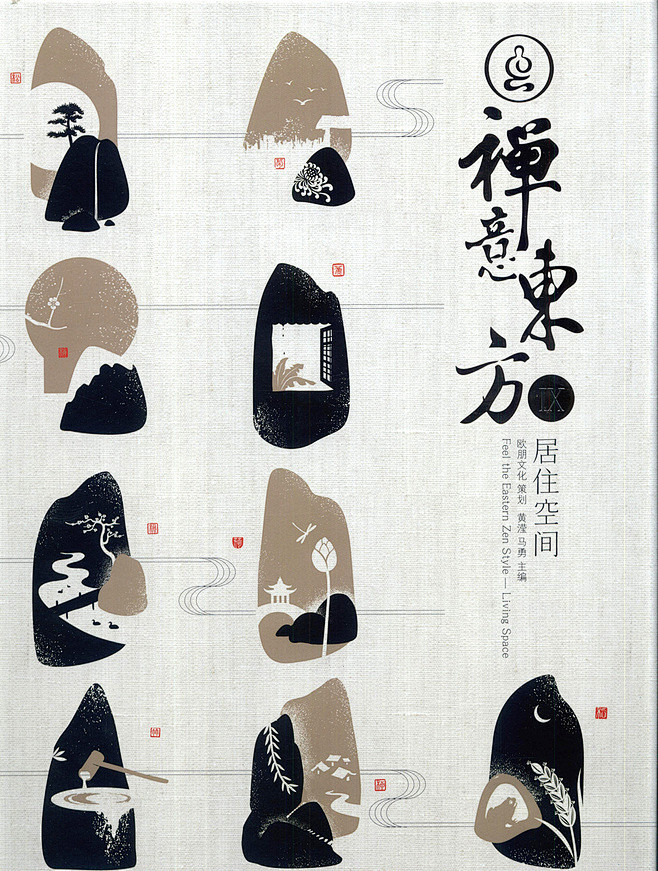 禅意東方
IX
居住空间
欧朋文化 策划 黄滢 马勇 主编
Feel the Eastern Zen Style — Living Space